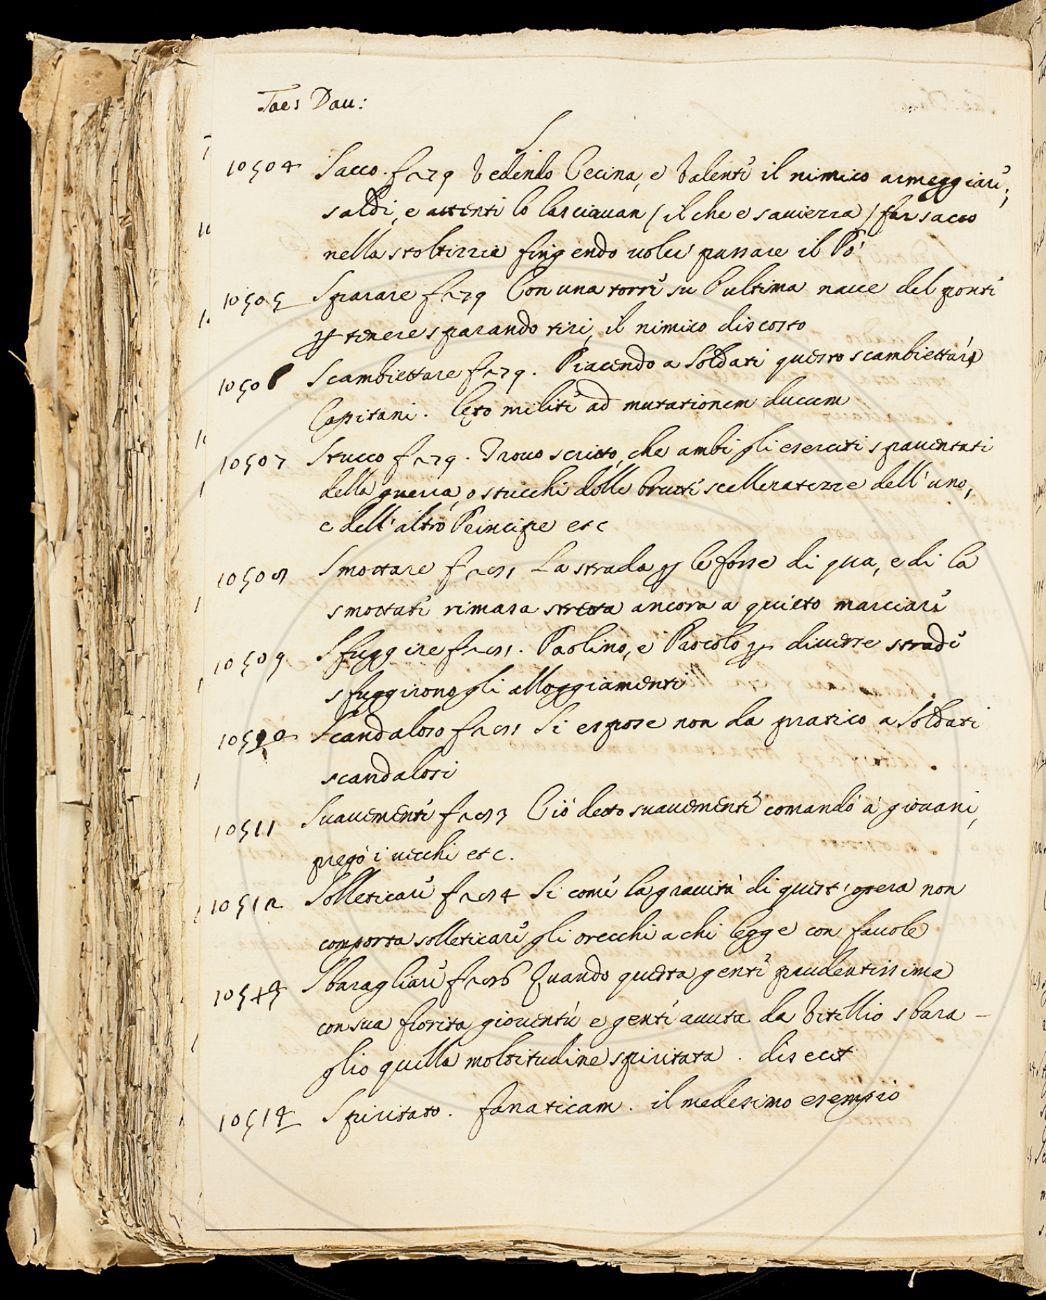 Tac: Dau:
S
10504 Sacco. f 279 Vedendo Cecina, e Valente il nimico armeggiare,
saldi, e attenti lo lasciauan (il che e sauiezza) far sacco
nella stoltizzia fingendo uoler passare il Pò
10505 Sparare f 279 Con una torre su l'ultima naue del ponte
per tenere sparando tiri, il nimico discosto
10506 Scambiettare f 279. Piacendo a Soldati questo scambiettare
Capitani. Leto milite ad mutationem ducum
10507 Stucco f 279. Trouo scritto, che ambi gli eserciti spauentati
della guerra, o stucchi delle brutte scelleratezze dell'uno,
e dell'altro Principe etc
10508 Smottare f 281 La strada per le fosse di qua, e di la
smottate rimasa stretta ancora a quieto marciare
10509 Sfuggire f 281. Paolino, e Procolo per diuerse strade
sfuggirono gli alloggiamenti
10510 Scandaloso f 281 Si espose non da pratico a Soldati
scandalosi
10511 Suauemente f 283 Ciò detto suauemente comandò a' giouani,
pregò i uecchi etc.
10512 Solleticare f 284 Si come la grauità di quest'opera non
comporta solleticare gli orecchi a chi legge con fauole
10513 Sbaragliare f 286 Quando questa gente prudentissima
con sua fiorita giouentù e gente auuta da Vitellio sbara-
glio quella moltitudine spiritata. disecit
10514 Spiritato. fanaticam. il medesimo esempio